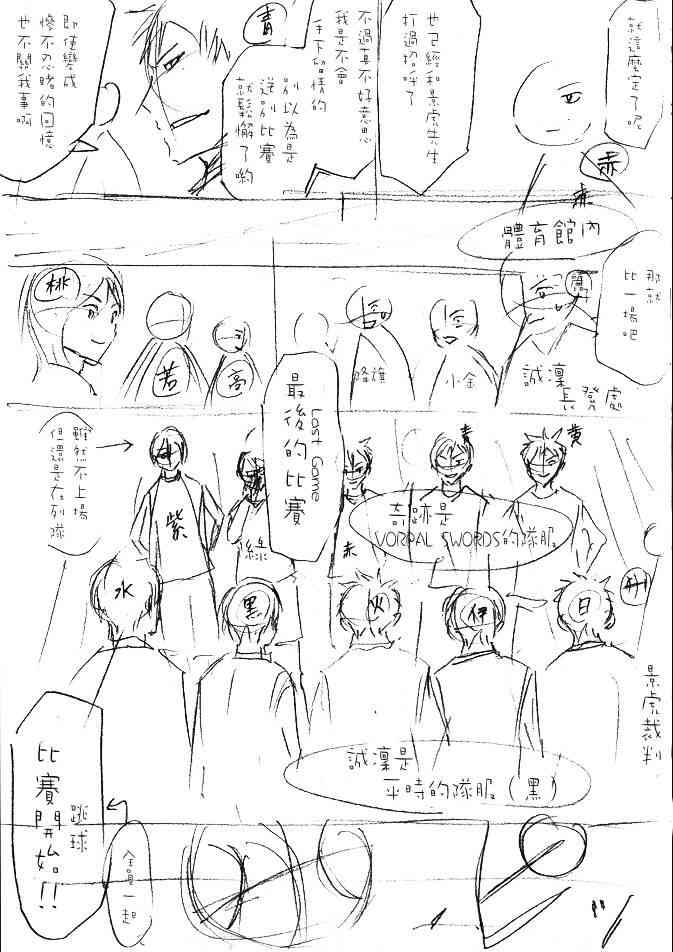 就這麼定了呢
也已經和景虎先生
打過招呼了
赤
赤
不過真不好意思
我是不會
手下留情的
青
別以為是
送別比賽
就鬆懈了喲
即使變成
慘不忍睹的回憶
也不關我事啊
體育館內
那就
比一場吧
誠凜
長凳處
小金
降旗
高
若
桃
Last Game
最後的比賽
雖然不上場
但還是在列隊
黃
青
赤
綠
紫
奇跡是
VORPAL SWORDS的隊服
日
伊
火
黑
水
景虎裁判
誠凜是
平時的隊服(黑)
跳球
比賽開始!!
全員一起